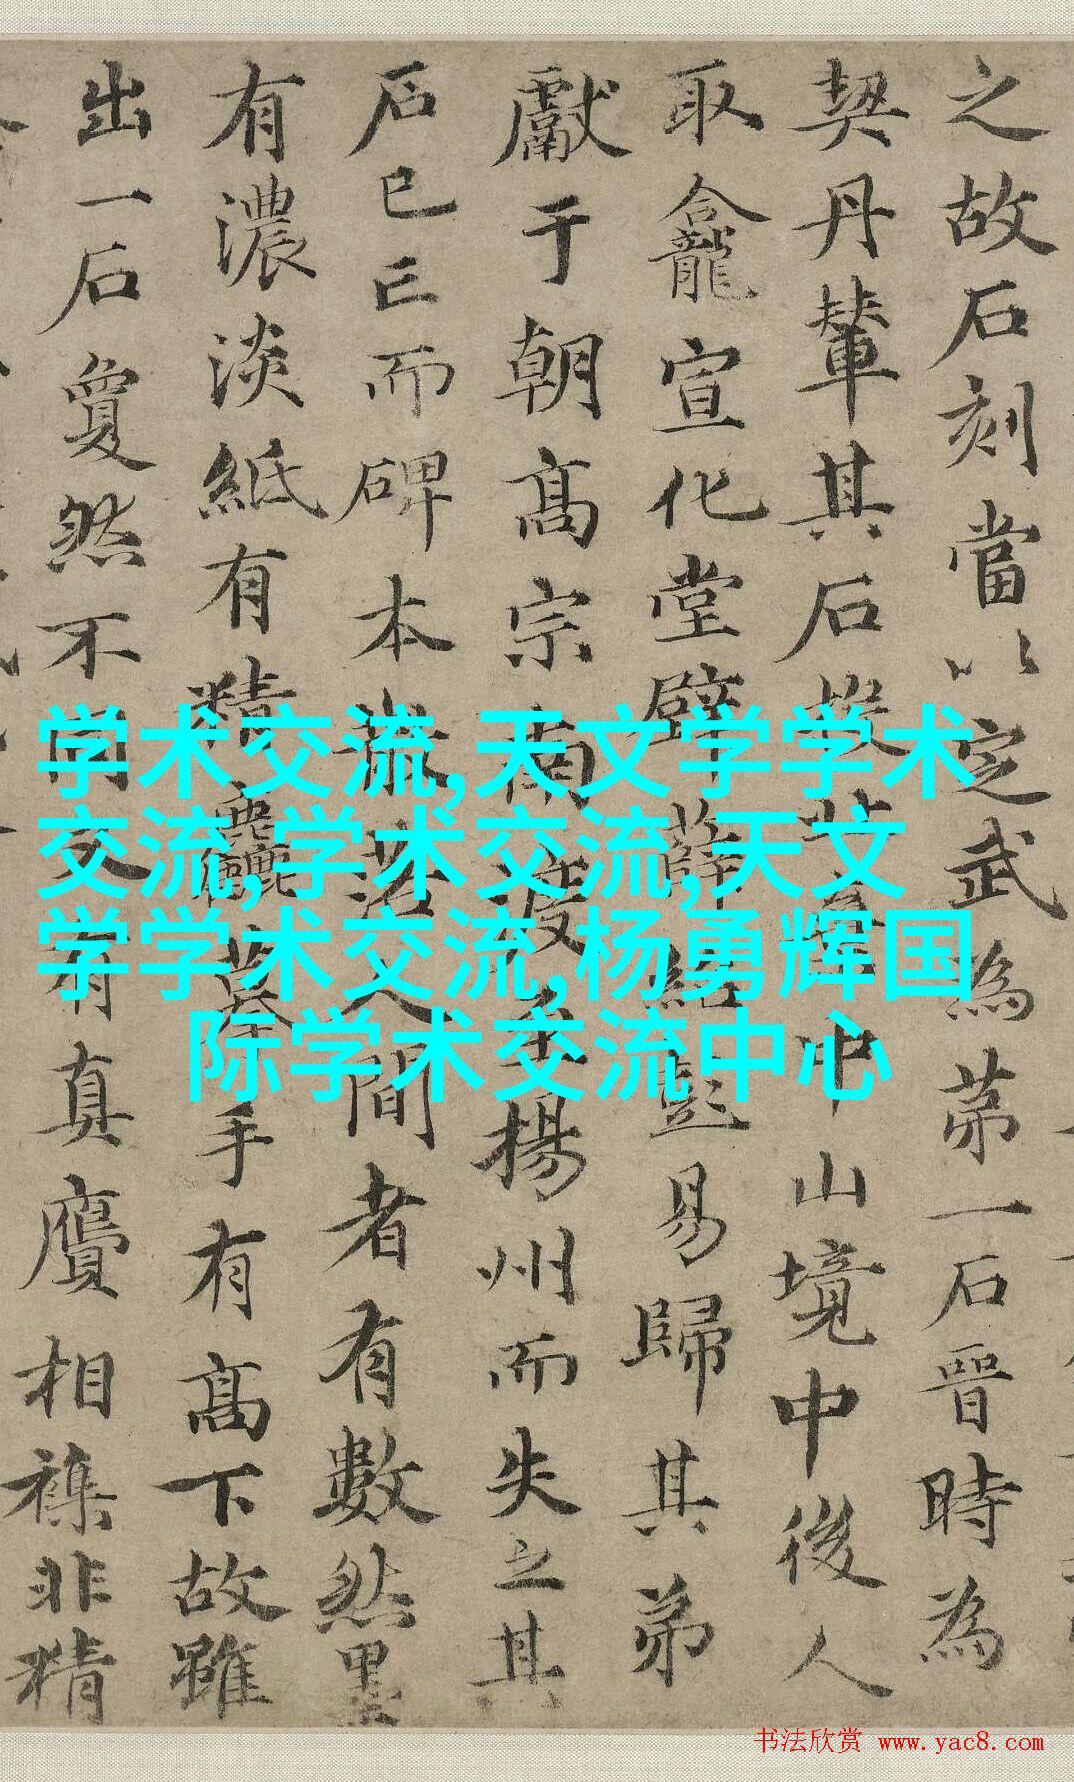 之故石刻當以定武為第一石晉時為
契丹輦其石投中山境中後人
取龕宣化堂壁薛紹彭易歸其弟
獻于朝高宗南渡至揚州而失之其
石已亡而碑本散落人間者有數然墨
有濃淡紙有精麤摹手有高下故雖
出一石夐然不同又有真贗相襍非精
学术交流,天文学学术
交流,学术交流,天文
学学术交流,杨勇辉国
际学术交流中心
书法欣赏 www.yac8.com